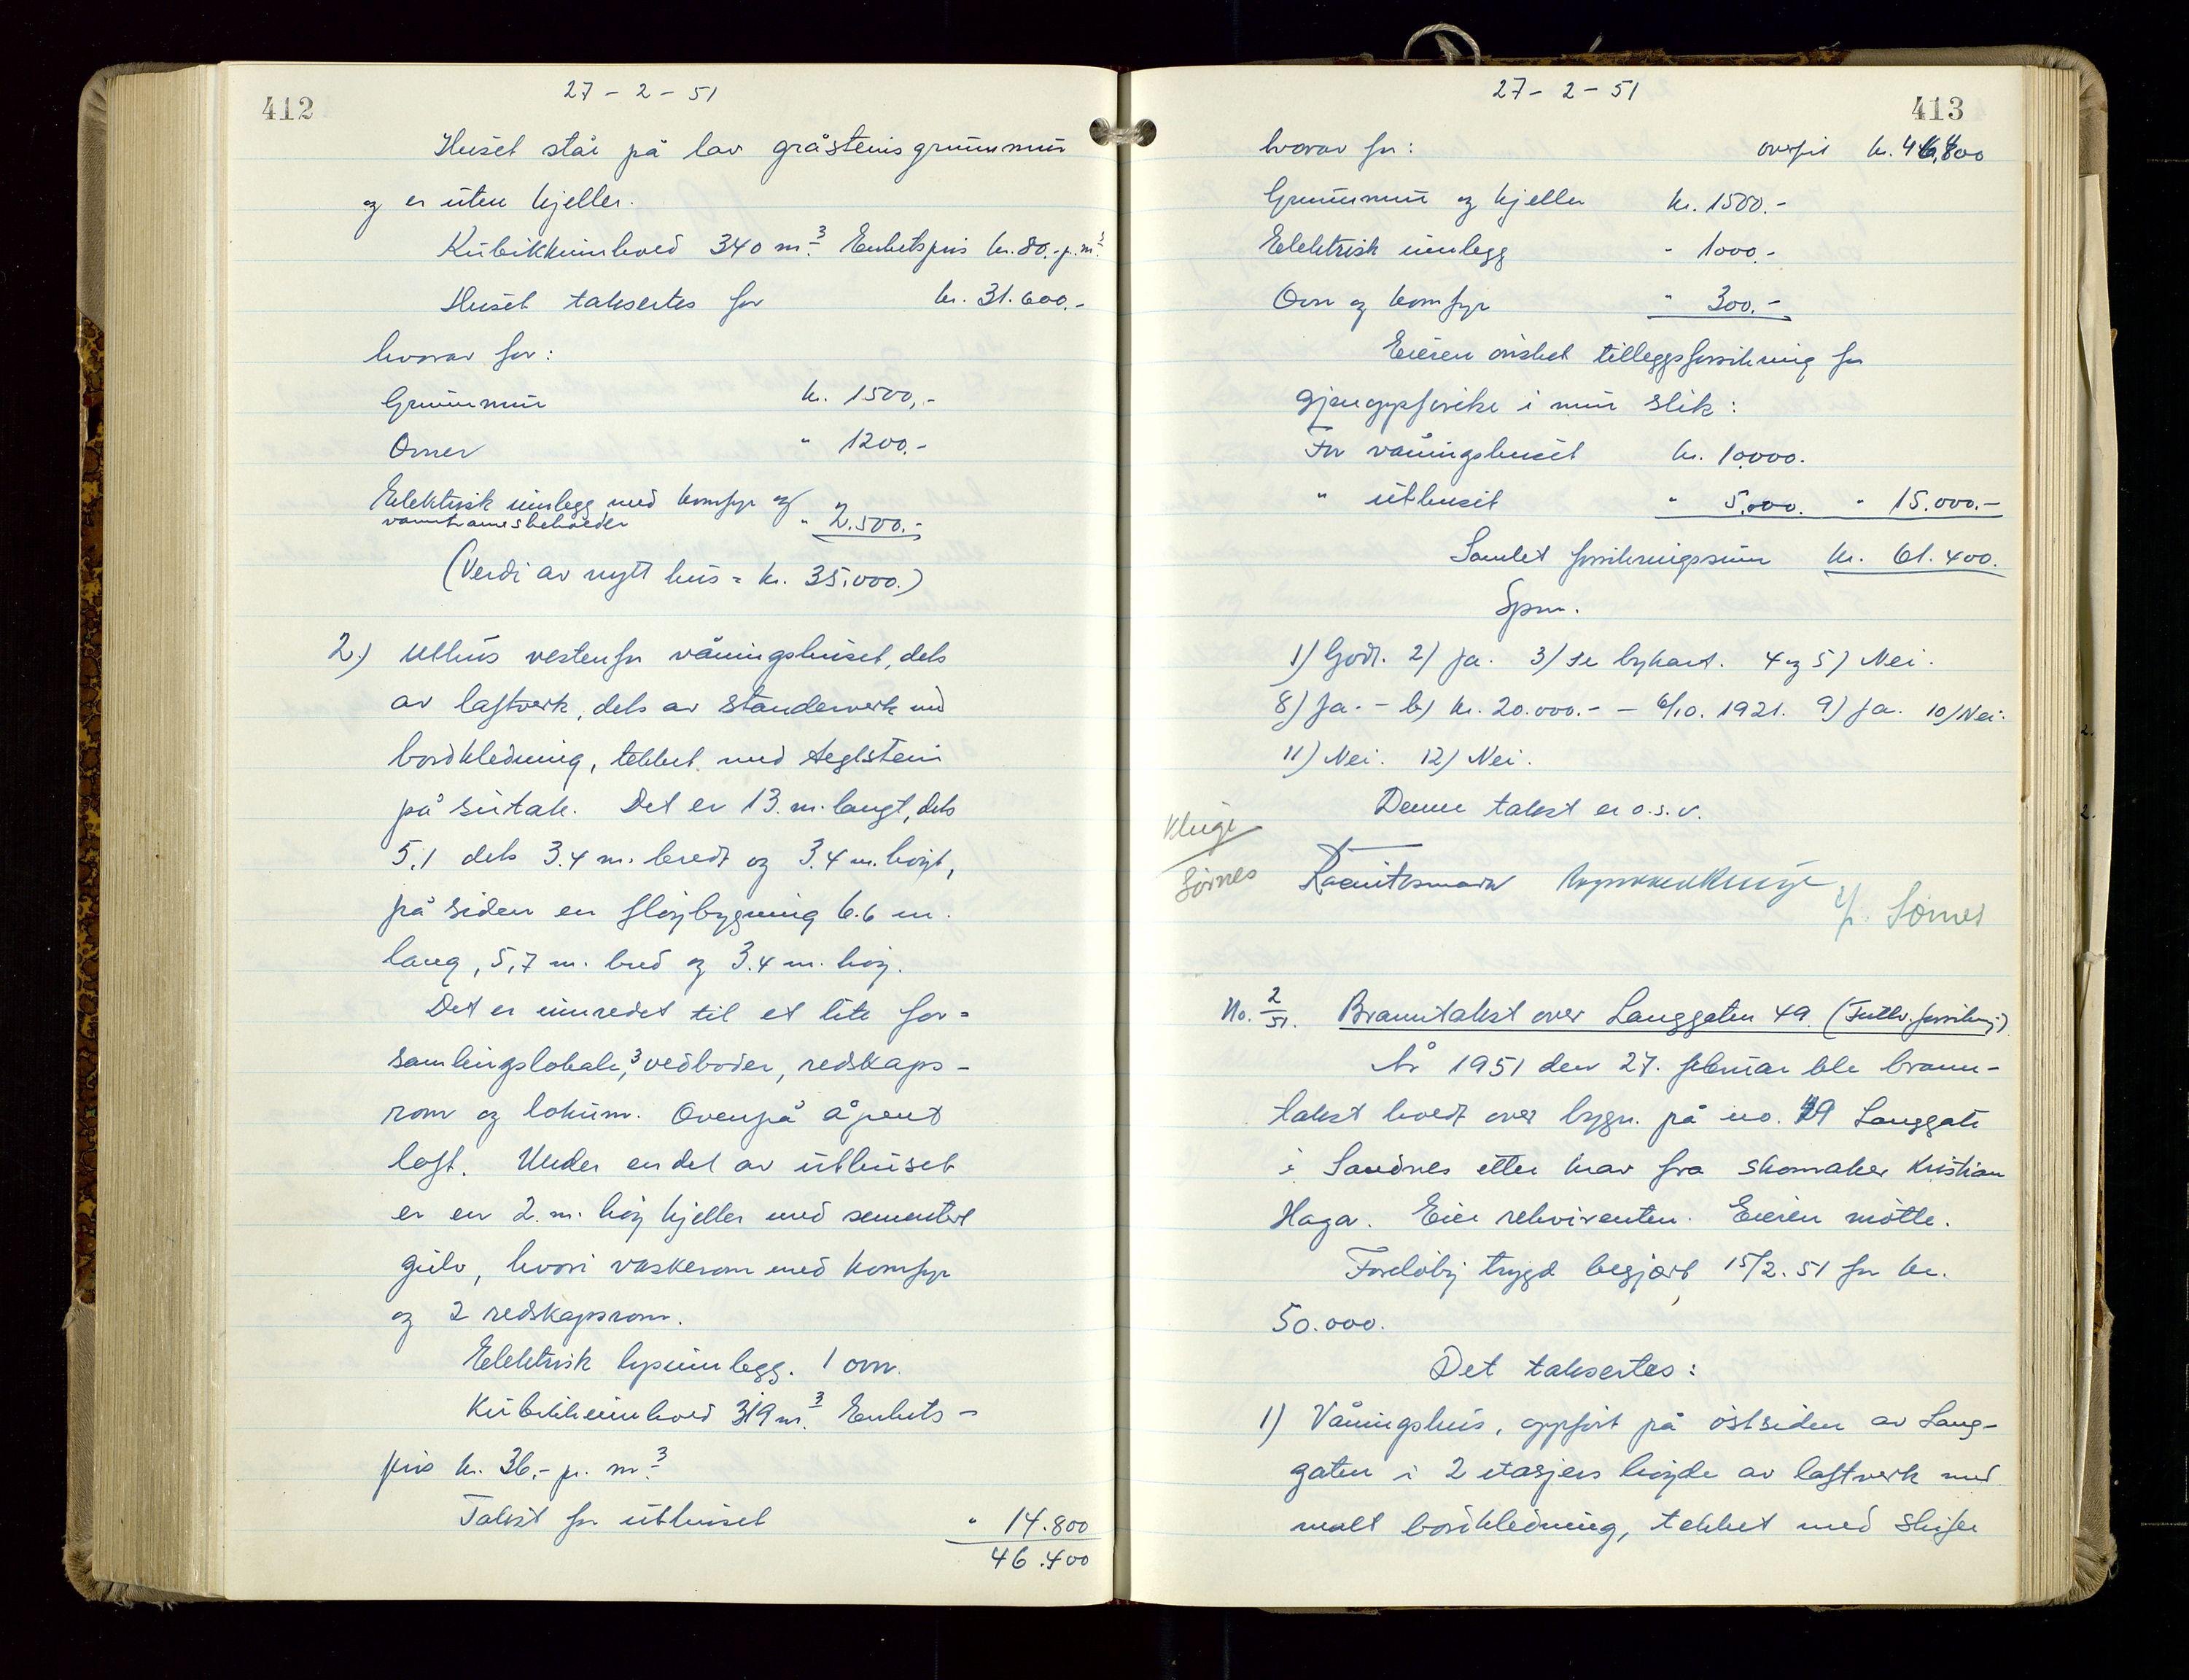 412
27 - 2 - 51
Huset står på lav gråsteinsgrunnmur
og er uten kjeller.
Kubikkinnhold 340 m.3 Enhetspris kr. 80.- p. m.3
Huset takseres for kr. 31.600.-
hvorav for:
Grunnmur kr. 1500,-
Ovner " 1200.-
Elektrisk innlegg med komfyr og
varmtvannsbeholder " 2.500.-
(Verdi av nytt hus = kr. 35.000.)
2.) Uthus vestenfor våningshuset, dels
av laftverk, dels av standerverk med
bordkledning, tekket med teglstein
på sutak. Det er 13 m. langt, dels
5,1 dels 3.4 m. bredt og 3.4 m. høyt,
på siden en fløybygning 6.6 m.
lang, 5,7 m. bred og 3.4 m. høy.
Det er innredet til et lite for=
samlingslokale, 3 vedboder, redskaps-
rom og lokum. Ovenpå åpent
loft. Under en del av uthuset
er en 2 m. høy kjeller med sementert
gulv, hvori vaskerom med komfyr
og 2 redskapsrom.
Elektrisk lysinnlegg. 1 ovn.
Kubikkinnhold 319 m.3 Enhets-
pris kr. 36.- p. m.3
Takst for uthuset " 14.800
46.400
27 - 2 - 51
413
hvorav for: overført kr. 46,400
Grunnmur og kjeller kr. 1500.-
Elektrisk innlegg - 1000.-
Ovn og komfyr " 300.-
Eieren ønsket tilleggsforsikring for
gjenoppførelse i mur slik:
For våningshuset kr. 10.000.
" uthuset " 5.000. " 15.000.-
Samlet forsikringssum kr. 61.400.
Spm.
1) Godt. 2) Ja. 3) Se bykart. 4 og 5) Nei.
8) Ja. - b) kr. 20.000.- - 6/10. 1921. 9) Ja. 10) Nei.
11) Nei. 12) Nei.
Denne takst er o.s.v.
Kluge
Sørnes
Sørnes
No. 2/51. Branntakst over Langgaten 49. (Frilv. forsikring)
År 1951 den 27. februar ble brann-
takst holdt over bygn. på no. 49 Langgate
i Sandnes etter krav fra skomaker Kristian
Haga. Eier rekvirenten. Eieren møtte.
Foreløbig trygd begjært 15/2. 51 for kr.
50.000.
Det takseres:
1) Våningshus, oppført på østsiden av Lang-
gaten i 2 etasjers høyde av laftverk med
malt bordkledning, tekket med skifer